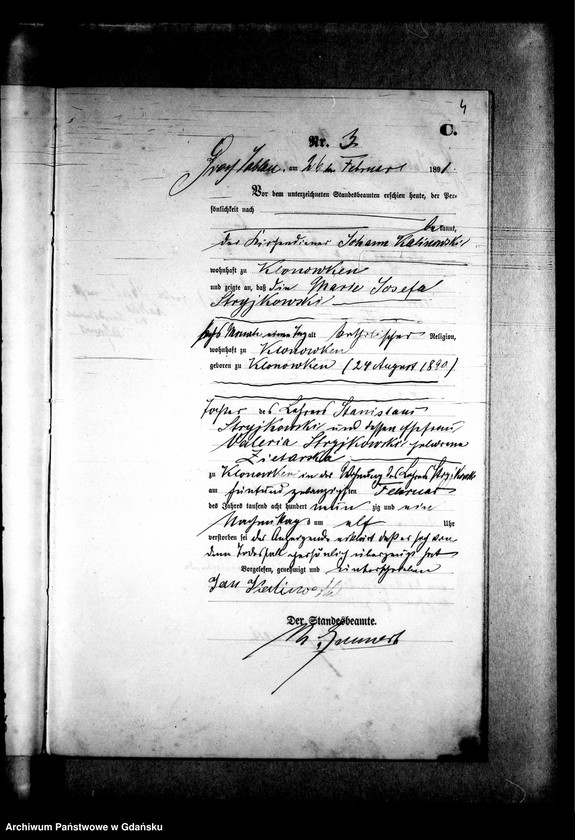 4
C.
Nr. 3
Gross Jablau, am 26ten Februar 1891.
Vor dem unterzeichneten Standesbeamten erschien heute, der Per-
sönlichkeit nach
bekannt,
der Kirchendiener Johann Kalinowski
wohnhaft zu Klonowken
und zeigte an, daß die Marie Josefa
Stryjkowski
sechs Monate einen Tag alt katholischer Religion,
wohnhaft zu Klonowken
geboren zu Klonowken (24 August 1890)
Tochter des Lehrers Stanislaus
Stryjkowski und dessen Ehefrau
Valeria Stryjkowski geborene
Zietarska
zu Klonowken in der Wohnung des Lehrers Stryjkowski
am fünfundzwanzigsten Februar
des Jahres tausend acht hundert neunzig und ein
Nachmittags um elf Uhr
verstorben sei der Anzeigende erklärt daß er sich von
dem Todesfall persönlich überzeugt hat
Vorgelesen, genehmigt und unterschrieben
Jan Kalinowski
Der Standesbeamte.
Archiwum Państwowe w Gdańsku